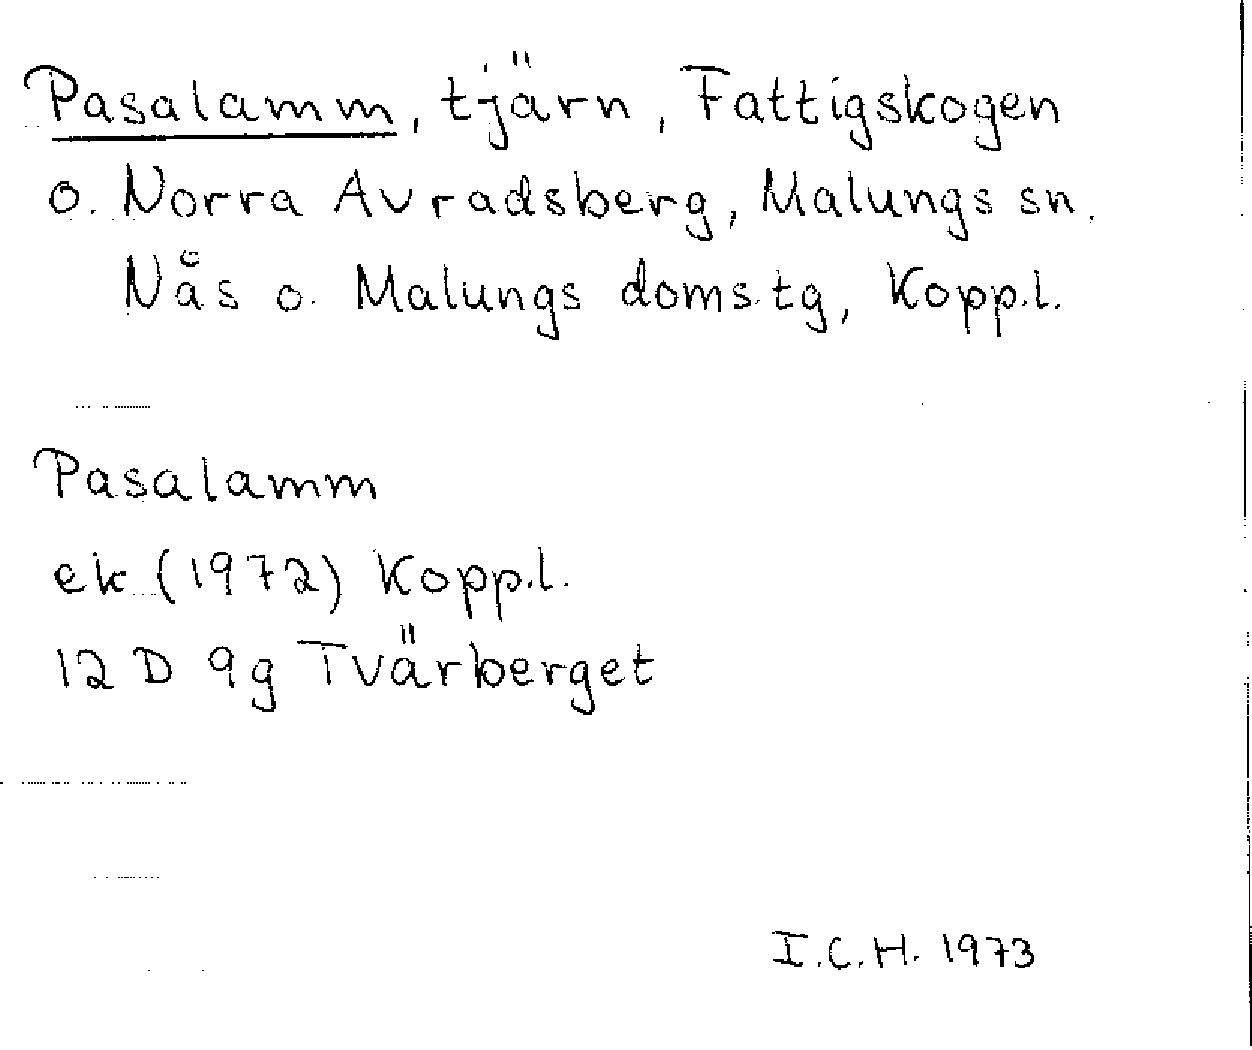 Pasalamm, tjärn, Fattigskogen
o. Norra Avradsberg, Malungs sn.
Nås o. Malungs doms.tg, Kopp.l.
Pasalamm
ek (1972) Kopp.l.
12 D 9g Tvärberget
I.C.H. 1973